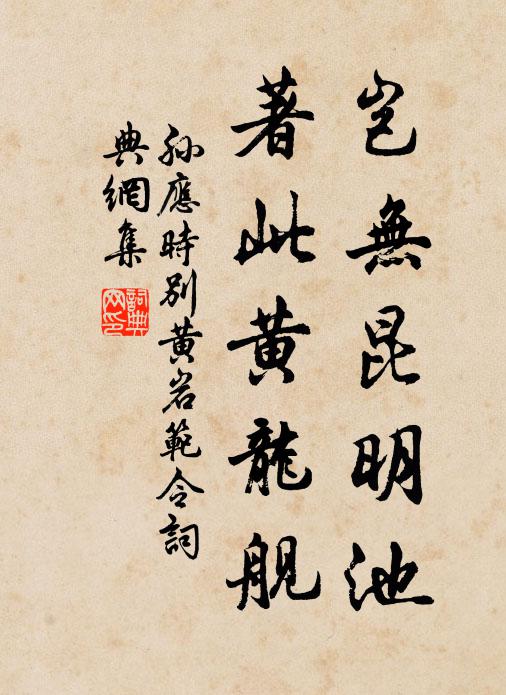 豈無昆明池
著此黃龍舰
孫應時別黃岩範令詞
典網集
詞典网印